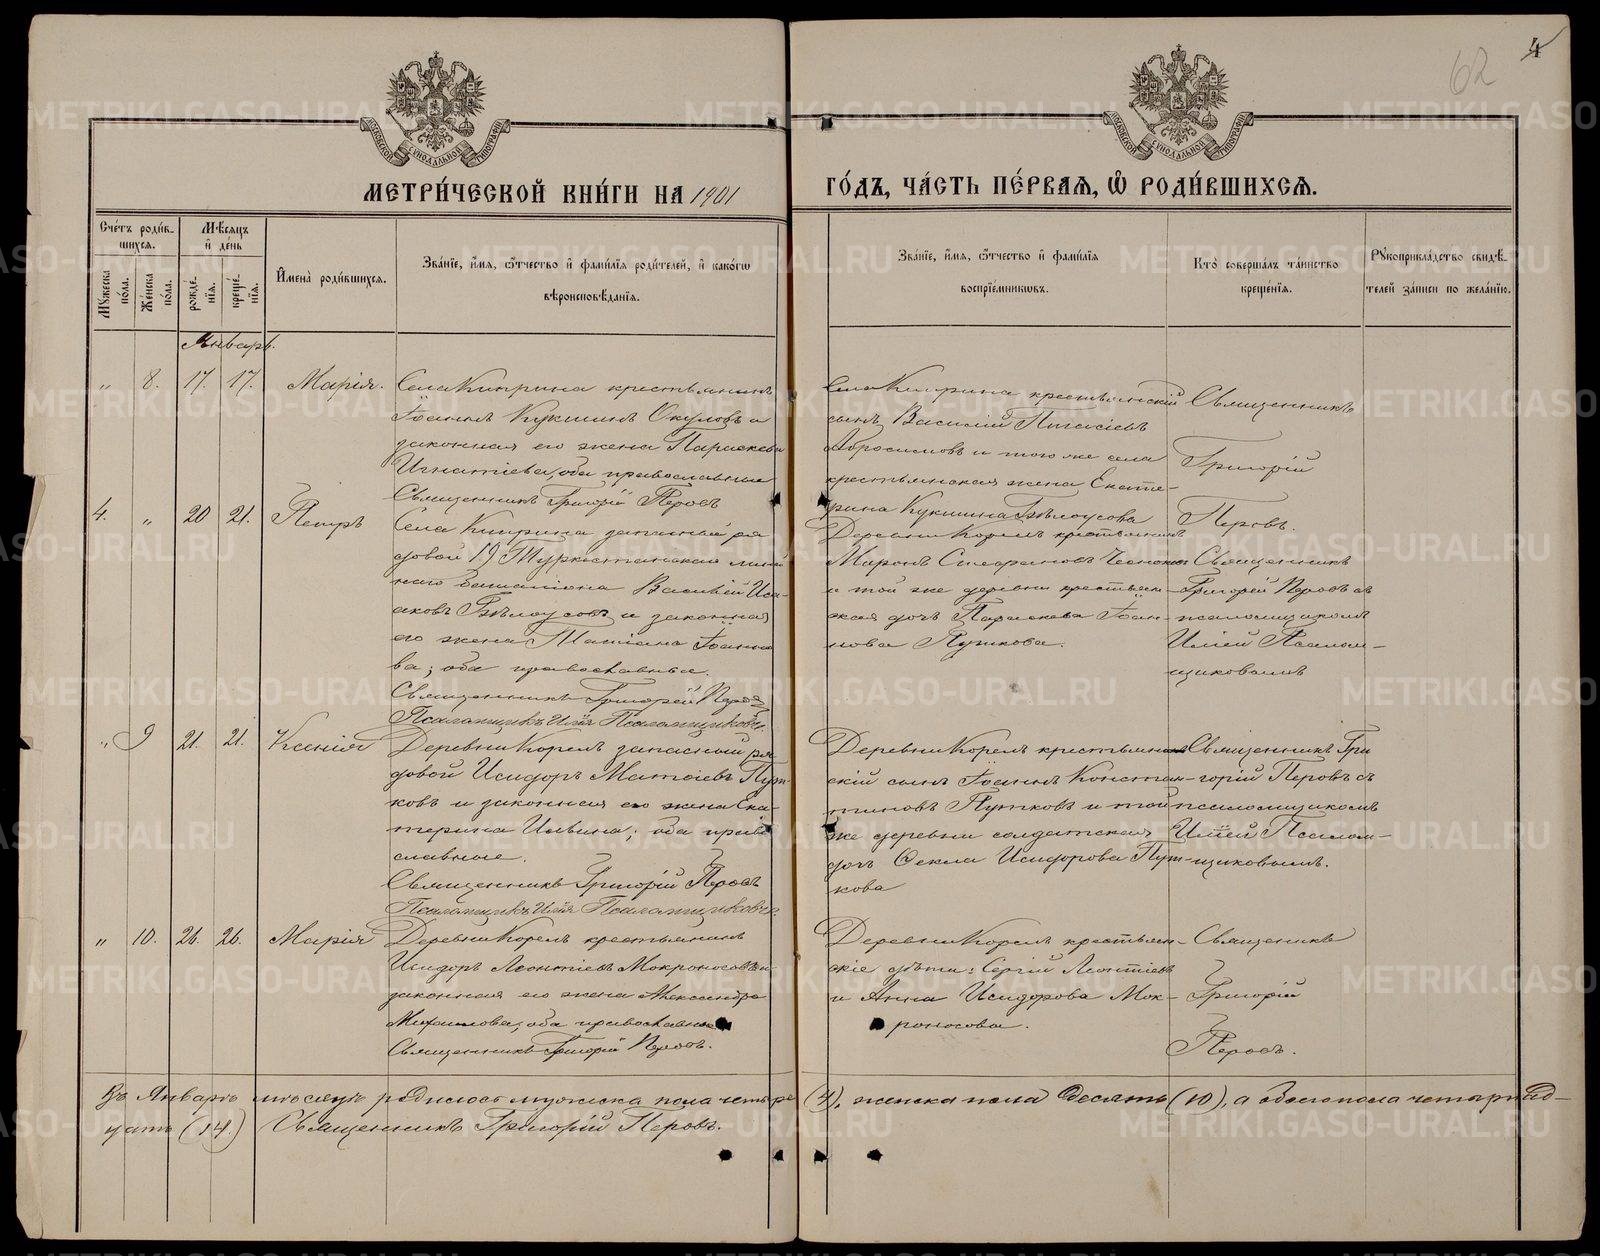 62
4
МОСКОВСКОЙ СУНОДАЛЬНОЙ ТИПОГРАФІИ
МОСКОВСКОЙ СУНОДАЛЬНОЙ ТИПОГРАФІИ
МЕТРИ́ЧЕСКОЙ КНИ́ГИ НА 1901
ГО́ДЪ, ЧА́СТЬ ПЕ́РВАѦ, Ѡ҆ РОДИ́ВШИХСѦ.
Сче́тъ роди́в-
шихся.
Мꙋ́жеска пола.
Же́нска по́ла.
Мѣ́сяцъ
и҆ де́нь
рожде́-
нїѧ.
креще́-
нїѧ.
И҆мена̀ роди́вшихсѧ.
Зва́нїе, и҆́мѧ, ѻ҆́тчество и҆ фами́лїѧ роди́телей, и҆ како́гѡ
вѣроисповѣ́данїѧ.
Зва́нїе, и҆́мѧ, ѻ҆́тчество и҆ фами́лїѧ
воспрїе́мникѡвъ.
Кто̀ соверша́лъ та́инство
креще́нїѧ.
Рꙋкоприкла́дство свидѣ́-
телей за́писи по жела́нїю.
Январь.
„ 8. 17. 17. Марія.
Села Киприна крестьянинъ
Іоаннъ Кукшинъ Окуловъ и
законная его жена Параскева
Игнатіева, оба православные
Священникъ Григорій Перовъ
Села Киприна крестьянскій
сынъ Василій
Абросимовъ и того же села
крестьянская жена Екате-
рина Кукшина Бѣлоусова
Священникъ
Григорій
Перовъ.
4. „ 20 21. Петръ
Села Киприна запасный ря
довой 19 Туркестанскаго линей
наго баталіона Василій Иса-
аковъ Бѣлоусовъ и законная
его жена Татіана Іоанно
ва; оба православные.
Священникъ Григорій Перовъ
Псаломщикъ Илія Псаломщиковъ.
Деревни Корелъ крестьянинъ
Миронъ Стефановъ
и той же деревни крестьян-
ская дочь Параскева Іоан-
нова Пушкова.
Священникъ
Григорій Перовъ съ
псаломщикомъ
Иліей Псалом-
щиковымъ
„ 9 21. 21. Ксенія
Деревни Корелъ запасный ря
довой Исидоръ Матѳіевъ Пут-
ковъ и законная его жена Ека-
терина Ильина; оба право
славные.
Священникъ Григорій Перовъ
Псаломщикъ Илія Псаломщиковъ.
Деревни Корелъ крестьян
скій сынъ Іоаннъ Констан-
тиновъ Путковъ и той
же деревни солдатская
дочь Ѳекла Исидорова Пут-
кова
Священникъ Гри
горій Перовъ съ
псаломщикомъ
Иліей Псалом-
щиковымъ.
„ 10. 26. 26. Марія
Деревни Корелъ крестьянинъ
Исидоръ Леонтіевъ Мокроносовъ и
законная его жена Александра
Михаилова, оба православные
Священникъ Григорій Перовъ.
Деревни Корелъ крестьян-
скіе дѣти: Сергій Леонтіевъ
и Анна Исидорова Мок-
роносова.
Священникъ
Григорій
Перовъ.
Въ Январѣ мѣсяцѣ родилось мужеска пола четыре (4), женска пола десять (10), а обоего пола четырнад-
цать (14.) Священникъ Григорій Перовъ.
METRIKI.GASO-URAL.RU